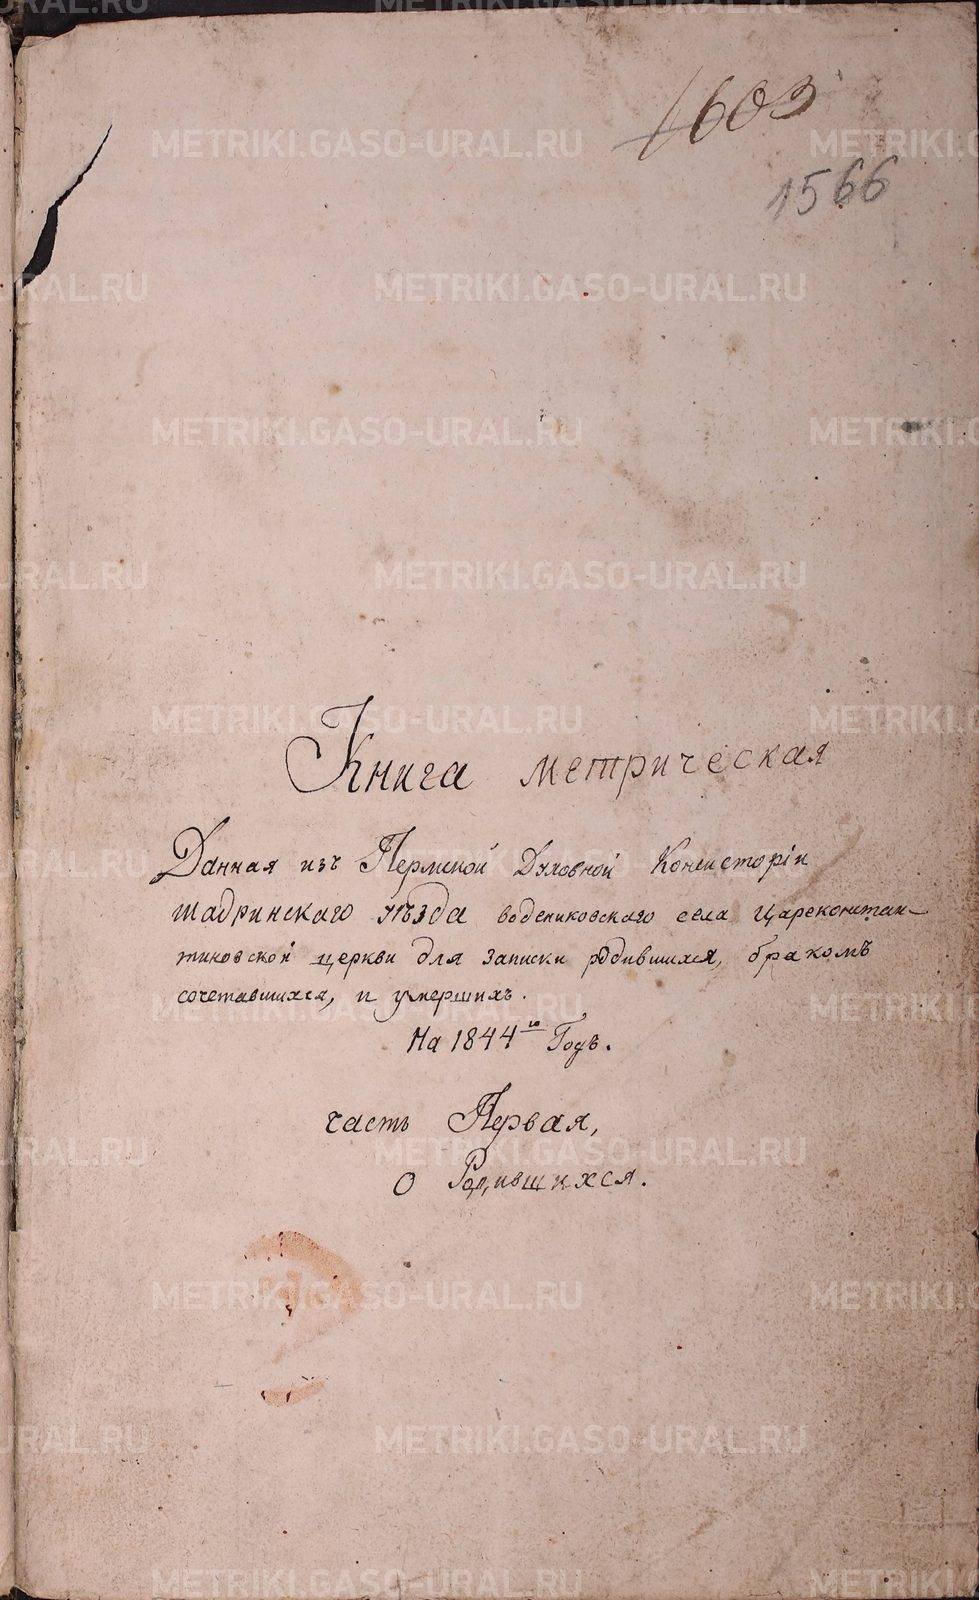 1603
1566
Книга метрическая
Данная изъ Пермской Духовной Консисторіи
шадринскаго уѣзда водениковскаго села Цареконстан-
тиновской церкви для записки родившихся, бракомъ
сочетавшихся, и умершихъ.
На 1844го Годъ.
часть Первая,
о Родившихся.
METRIKI.GASO-URAL.RU